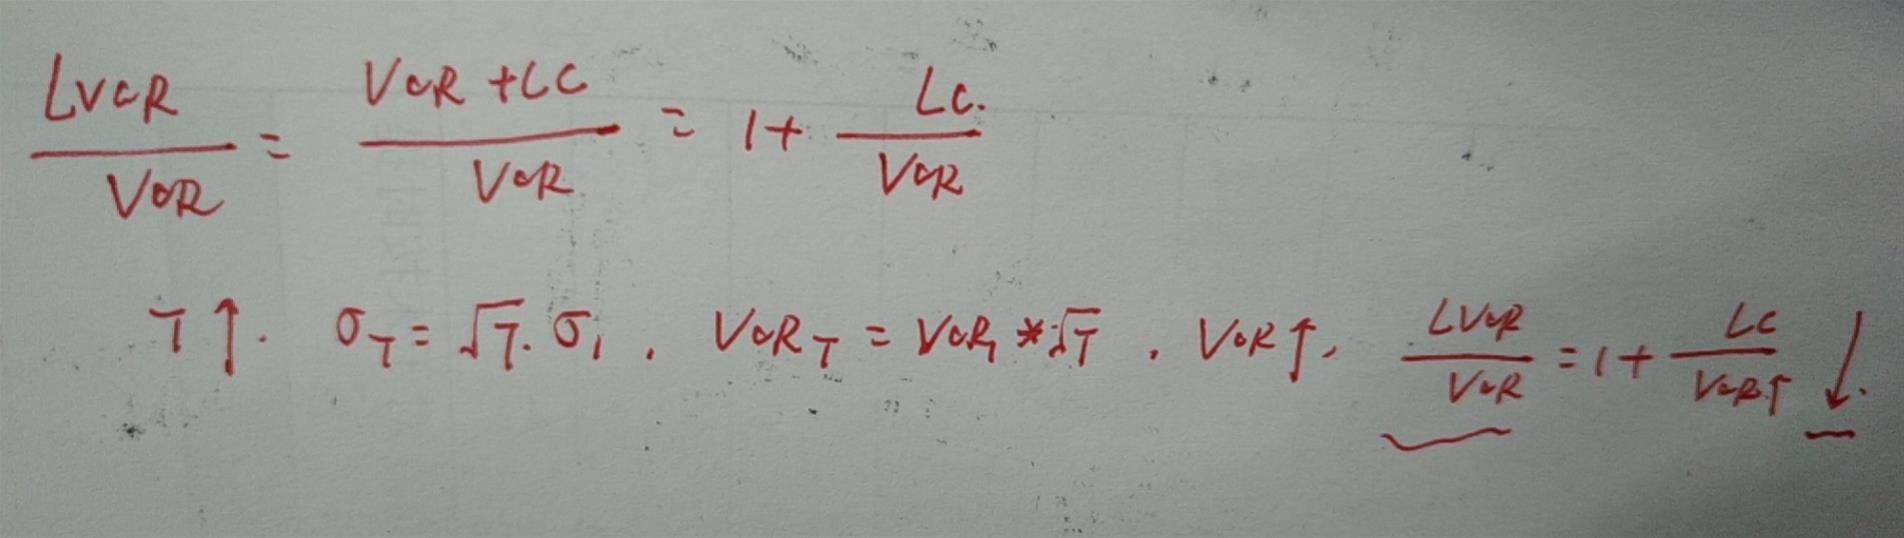 LVaR / VaR = VaR + LC / VaR = 1 + LC. / VaR
T↑. σ_T = √T. σ_1, VaR_T = VaR_1 * √T. VaR↑, LVaR / VaR = 1 + LC / VaR↑ ↓.